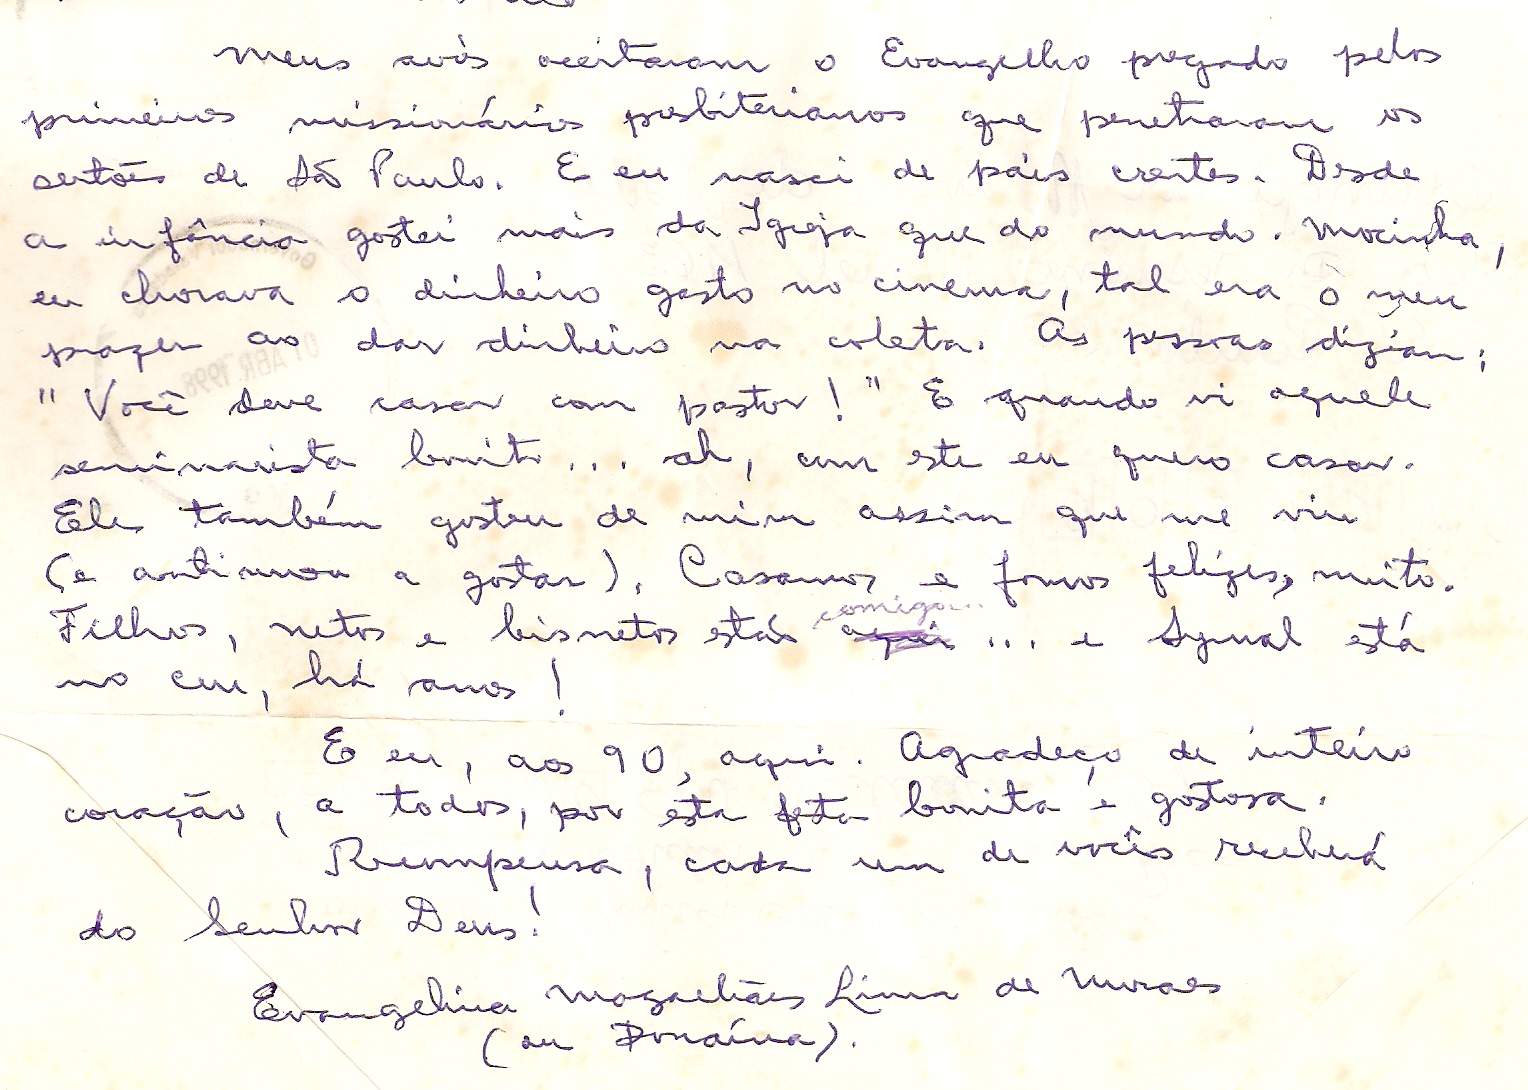 Meus avós aceitaram o Evangelho pregado pelos
primeiros missionários presbiterianos que penetraram os
sertões de São Paulo. E eu nasci de pais crentes. Desde
a infância gostei mais da Igreja que do mundo. Mocinha,
eu chorava o dinheiro gasto no cinema, tal era o meu
prazer ao dar dinheiro na coleta. As pessoas diziam:
"Você deve casar com pastor!" E quando vi aquele
seminarista bonito... ah, com este eu quero casar.
Ele também gostou de mim assim que me viu
(e continuou a gostar). Casamos e fomos felizes, muito.
comigo...
Filhos, netos e bisnetos estão aqui ... e Synval está
no céu, há anos!
E eu, aos 90, aqui. Agradeço de inteiro
coração, a todos, por esta festa bonita e gostosa.
Recompensa, cada um de vocês receberá
do Senhor Deus!
Evangelina Magalhães Lima de Moraes
(ou Donaína).
01 ABR 1998